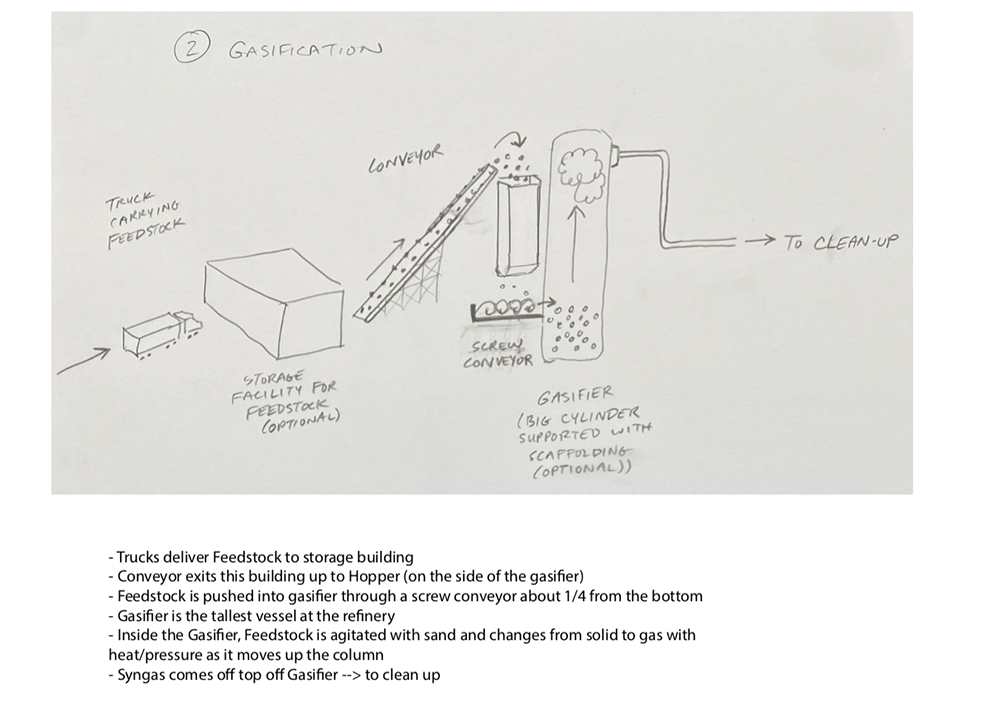 2 GASIFICATION
CONVEYOR
TRUCK
CARRYING
FEEDSTOCK
TO CLEAN-UP
SCREW
CONVEYOR
STORAGE
FACILITY FOR
FEEDSTOCK
(OPTIONAL)
GASIFIER
(BIG CYLINDER
SUPPORTED WITH
SCAFFOLDING
(OPTIONAL))
- Trucks deliver Feedstock to storage building
- Conveyor exits this building up to Hopper (on the side of the gasifier)
- Feedstock is pushed into gasifier through a screw conveyor about 1/4 from the bottom
- Gasifier is the tallest vessel at the refinery
- Inside the Gasifier, Feedstock is agitated with sand and changes from solid to gas with
heat/pressure as it moves up the column
- Syngas comes off top off Gasifier --> to clean up